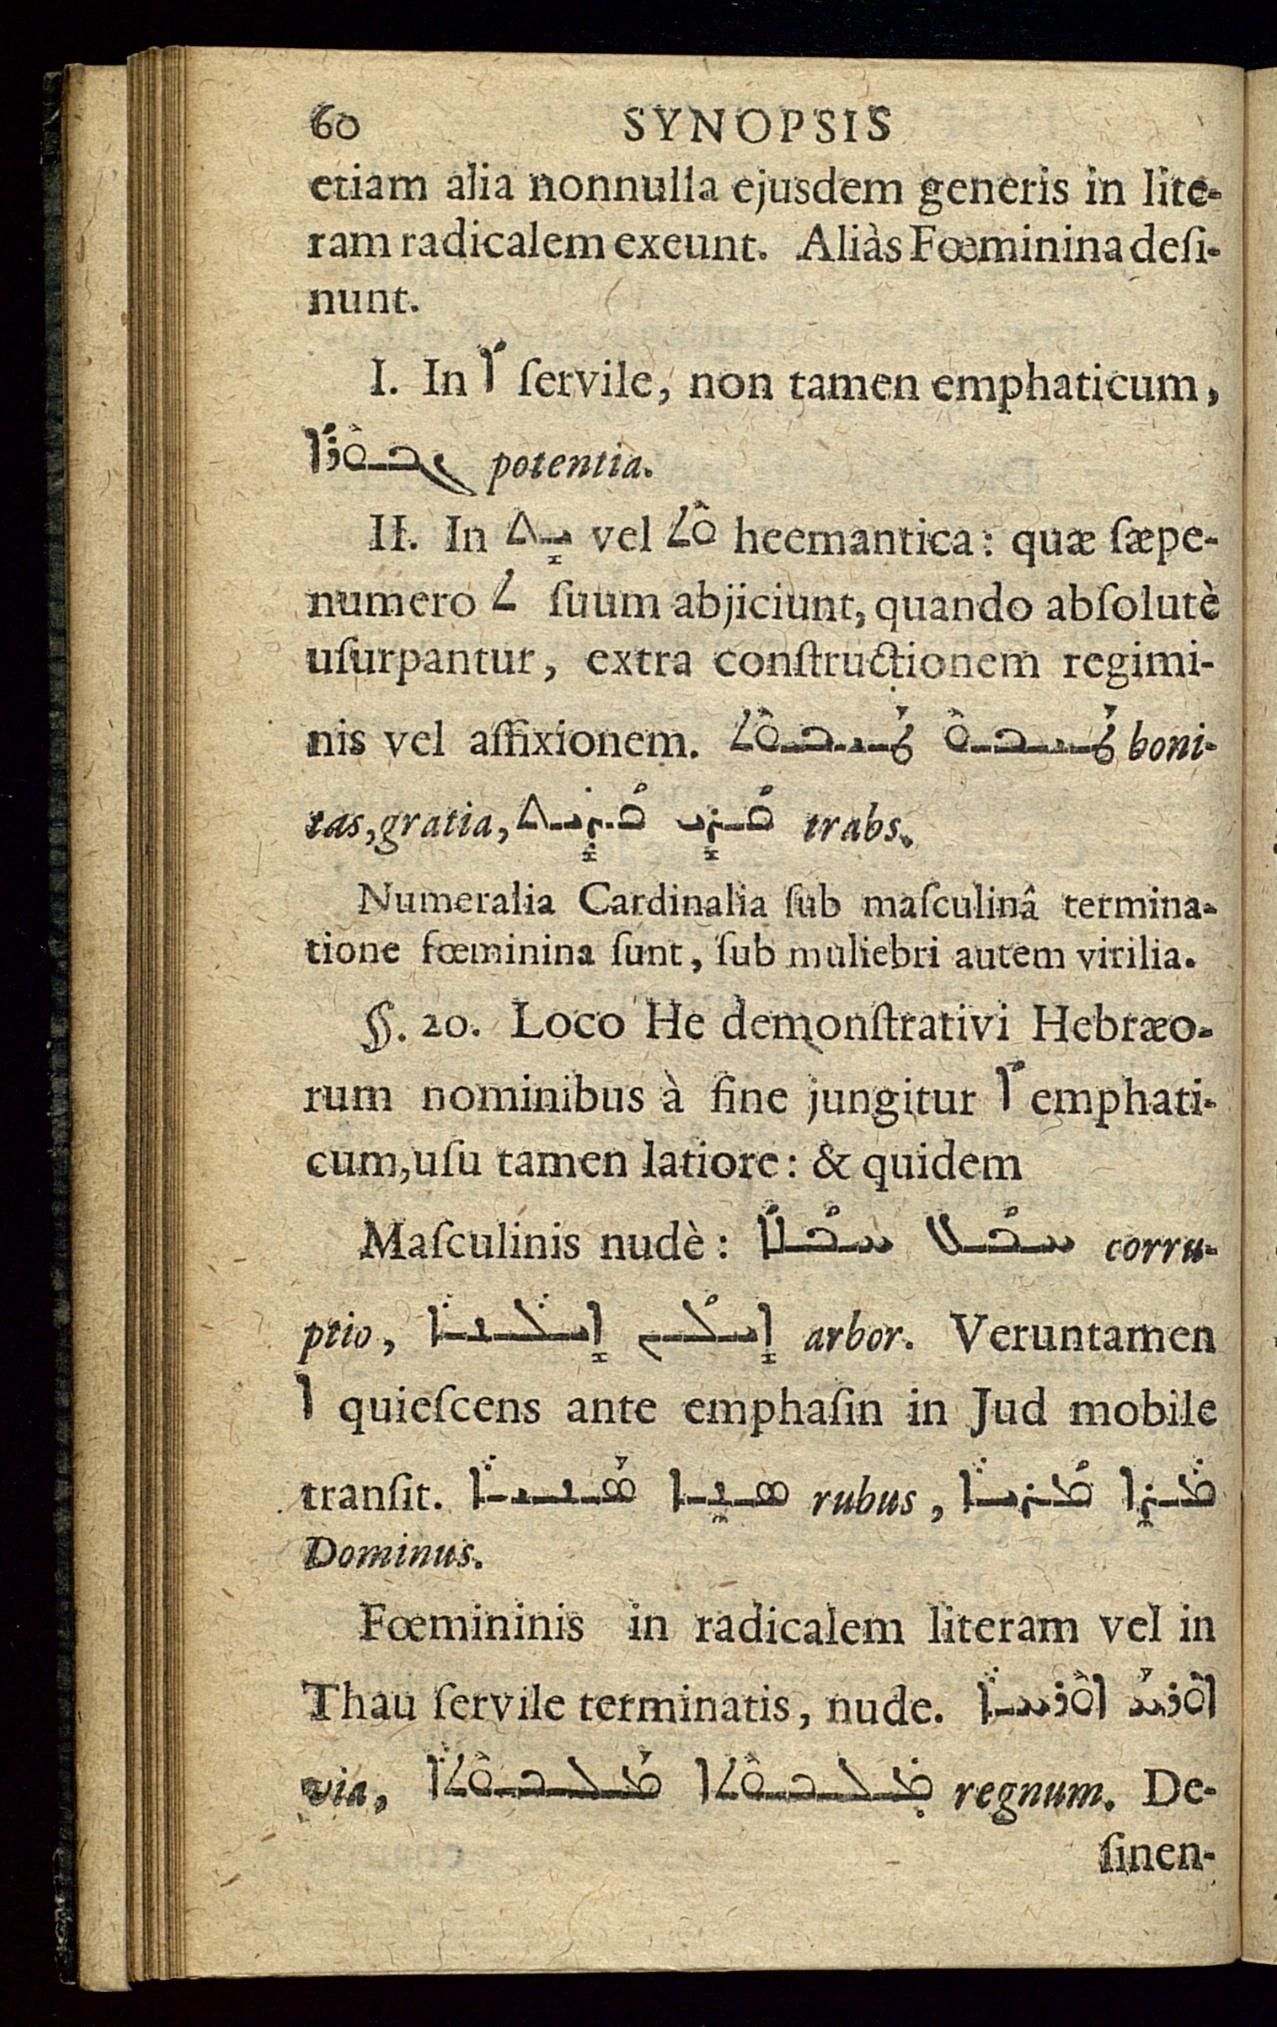 60 SYNOPSIS
etiam alia nonnulla ejusdem generis in lite-
ram radicalem exeunt. Aliàs Fœminina desi-
nunt.
I. In ܐ ſervile, non tamen emphaticum,
potentia.
II. In ܝܬ vel ܘܬ heemantica: quæ ſæpe-
numero ܬ ſuum abjiciunt, quando abſolutè
uſurpantur, extra conſtructionem regimi-
nis vel affixionem. ܛܝܒܘܬ ܛܝܒܘ boni-
tas, gratia, ܩܪܝܬ ܩܪܝ trabs.
Numeralia Cardinalia ſub maſculinâ termina-
tione fœminina ſunt, ſub muliebri autem virilia.
§. 20. Loco He demonſtrativi Hebræo-
rum nominibus à fine jungitur ܐ emphati-
cum, uſu tamen latiore: & quidem
Maſculinis nudè: ܚܒܠܐ ܚܒܠ corru-
ptio, ܐܝܠܢܐ ܐܝܠܢ arbor. Veruntamen
ܐ quieſcens ante emphaſin in Jud mobile
tranſit. ܣܢܝܐ ܣܢܐ rubus, ܡܪܝܐ ܡܪܐ
Dominus.
Fœmininis in radicalem literam vel in
Thau ſervile terminatis, nude. ܐܘܪܚܐ ܐܘܪܚ
via, ܡܠܟܘܬܐ regnum. De-
ſinen-